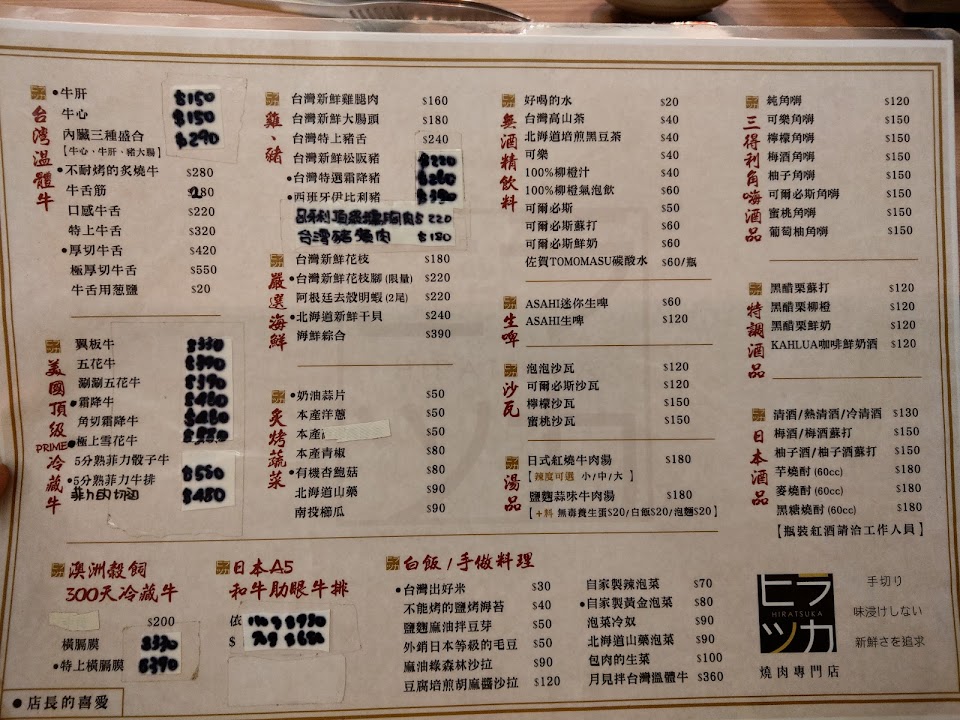 台灣溫體牛
•牛肝 $150
牛心 $150
內臟三種盛合 $290
【牛心、牛肝、豬大腸】
•不耐烤的炙燒牛 $280
牛舌筋 280
口感牛舌 $220
特上牛舌 $320
•厚切牛舌 $420
極厚切牛舌 $550
牛舌用蔥鹽 $20
美國頂級PRIME冷藏牛
翼板牛 $330
五花牛 $390
涮涮五花牛 $390
•霜降牛 $480
角切霜降牛 $480
•極上雪花牛
5分熟菲力骰子牛 $550
•5分熟菲力牛排 $480
菲力肉切
雞、豬
台灣新鮮雞腿肉 $160
台灣新鮮大腸頭 $180
台灣特上豬舌 $240
台灣新鮮松阪豬 $220
•台灣特選霜降豬 $260
•西班牙伊比利豬
$220
台灣豬 肉 $180
嚴選海鮮
台灣新鮮花枝 $180
•台灣新鮮花枝腳(限量) $220
阿根廷去殼明蝦(2尾) $220
•北海道新鮮干貝 $240
海鮮綜合 $390
炙烤蔬菜
•奶油蒜片 $50
本產洋蔥 $50
本產 $50
本產青椒 $80
•有機杏鮑菇 $80
北海道山藥 $90
南投櫛瓜 $90
無酒精飲料
好喝的水 $20
台灣高山茶 $40
北海道焙煎黑豆茶 $40
可樂 $40
100%柳橙汁 $40
100%柳橙氣泡飲 $60
可爾必斯 $50
可爾必斯蘇打 $60
可爾必斯鮮奶 $60
佐賀TOMOMASU碳酸水 $60/瓶
生啤
ASAHI迷你生啤 $60
ASAHI生啤 $120
沙瓦
泡泡沙瓦 $120
可爾必斯沙瓦 $120
檸檬沙瓦 $150
蜜桃沙瓦 $150
湯品
日式紅燒牛肉湯 $180
【辣度可選 小/中/大】
鹽麴蒜味牛肉湯 $180
【+料 無毒養生蛋$20/白飯$20/泡麵$20】
三得利角嗨酒品
純角嗨 $120
可樂角嗨 $150
檸檬角嗨 $150
梅酒角嗨 $150
柚子角嗨 $150
可爾必斯角嗨 $150
蜜桃角嗨 $150
葡萄柚角嗨 $150
特調酒品
黑醋栗蘇打 $120
黑醋栗柳橙 $120
黑醋栗鮮奶 $120
KAHLUA咖啡鮮奶酒 $120
日本酒品
清酒/熱清酒/冷清酒 $130
梅酒/梅酒蘇打 $150
柚子酒/柚子酒蘇打 $150
芋燒酎(60cc) $180
麥燒酎(60cc) $180
黑糖燒酎(60cc) $180
【瓶裝紅酒請洽工作人員】
澳洲穀飼
300天冷藏牛
$200
橫膈膜 $330
•特上橫膈膜 $390
日本A5
和牛肋眼牛排
依
$
白飯/手做料理
•台灣出好米 $30
不能烤的鹽烤海苔 $40
鹽麴麻油拌豆芽 $50
外銷日本等級的毛豆 $50
麻油綠森林沙拉 $90
豆腐焙煎胡麻醬沙拉 $120
自家製辣泡菜 $70
•自家製黃金泡菜 $80
泡菜冷奴 $90
北海道山藥泡菜 $90
包肉的生菜 $100
月見拌台灣溫體牛 $360
ヒラツカ
HIRATSUKA
燒肉專門店
手切り
味浸けしない
新鮮さを追求
●店長的喜愛